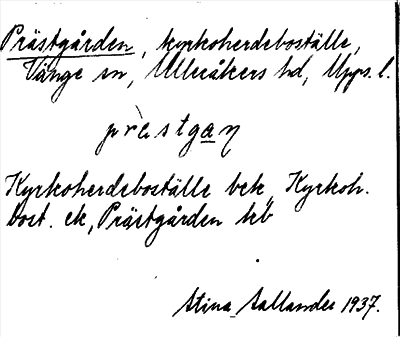 Prästgården, kyrkoherdeboställe,
Vänge sn, Ulleråkers hd, Upps. l.
prà̀stgaη
Kyrkoherdeboställe bek, Kyrkoh.
bost. ek, Prästgården kb
Stina Sallander 1937.